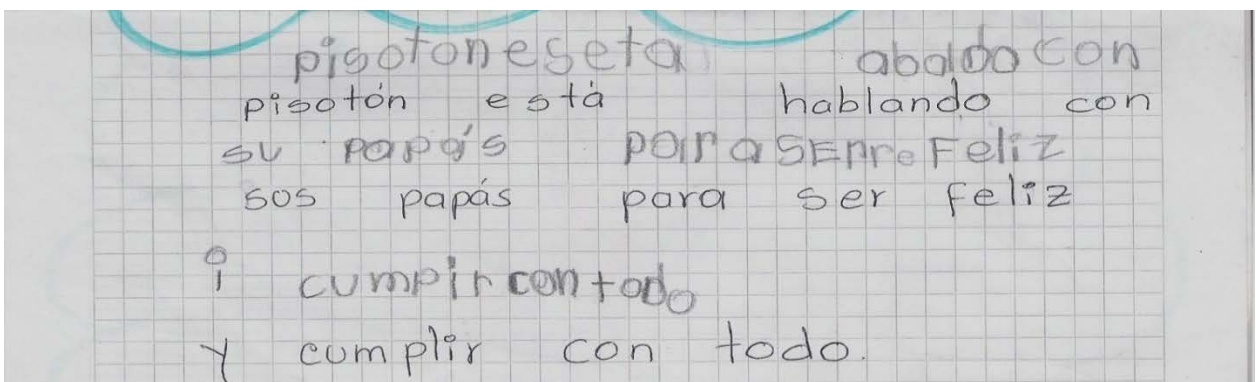 pisotoneseta abaldo con
pisotón está hablando con
su papás para SEnrre Feliz
sos papás para ser feliz
i cumpir con todo
y cumplir con todo.